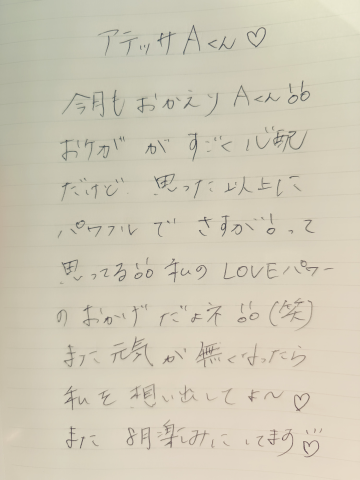 アテッサ Aくん♡
今月も おかえり Aくん!!
おケガ が すごく 心配
だけど 思った以上に
パワフル で さすが!! って
思ってる!! 私の LOVEパワー
の おかげ だよネ!! (笑)
また 元気 が 無くなったら
私を 想い出してよ〜♡
また 8月楽しみに してます♡